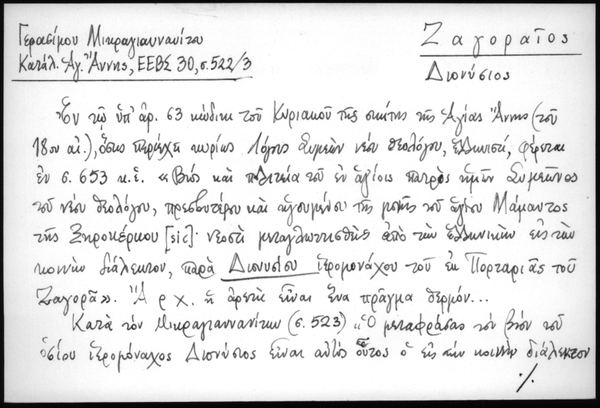 Γερασίμου Μικραγιαννανίτου
Κατάλ. Ἁγ. Ἄννης, ΕΕΒΣ 30, σ. 522/3
Ζαγοραῖος
Διονύσιος
Ἐν τῷ ὑπ' ἀρ. 63 κώδικι τοῦ Κυριακοῦ τῆς σκήτης τῆς Ἁγίας Ἄννης (τοῦ
18ου αἰ.), ὅστις περιέχει κυρίως λόγους Συμεὼν νέου θεολόγου, ἑλληνιστί, φέρεται
ἐν σ. 653 κ.ἑ. «Βίος καὶ πολιτεία τοῦ ἐν ἁγίοις πατρὸς ἡμῶν Συμεῶνος
τοῦ νέου θεολόγου, πρεσβυτέρου καὶ ἡγουμένου τῆς μονῆς τοῦ ἁγίου Μάμαντος
τῆς Ξηροκέρκου [sic]· νεοστὶ μεταγλωττισθεὶς ἀπὸ τὴν ἑλληνικὴν εἰς τὴν
κοινὴν διάλεκτον, παρὰ Διονυσίου ἱερομονάχου τοῦ ἐκ Πορταριᾶς τοῦ
Ζαγορᾶ». Ἀρχ. ἡ ἀρετὴ εἶναι ἕνα πρᾶγμα θερμόν...
Κατὰ τὸν Μικραγιαννανίτην (σ. 523) "Ὁ μεταφράσας τὸν βίον τοῦ
ὁσίου ἱερομόναχος Διονύσιος εἶναι αὐτὸς οὗτος ὁ εἰς τὴν κοινὴν διάλεκτον
./.